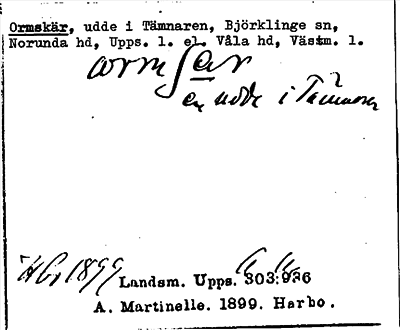 Ormskär, udde i Tämnaren, Björklinge sn,
Norunda hd, Upps. l. el. Våla hd, Västm. l.
en udde i Tämnaren
Hbo 1899
Landsm. Upps. 303:936
A. Martinelle. 1899. Harbo.